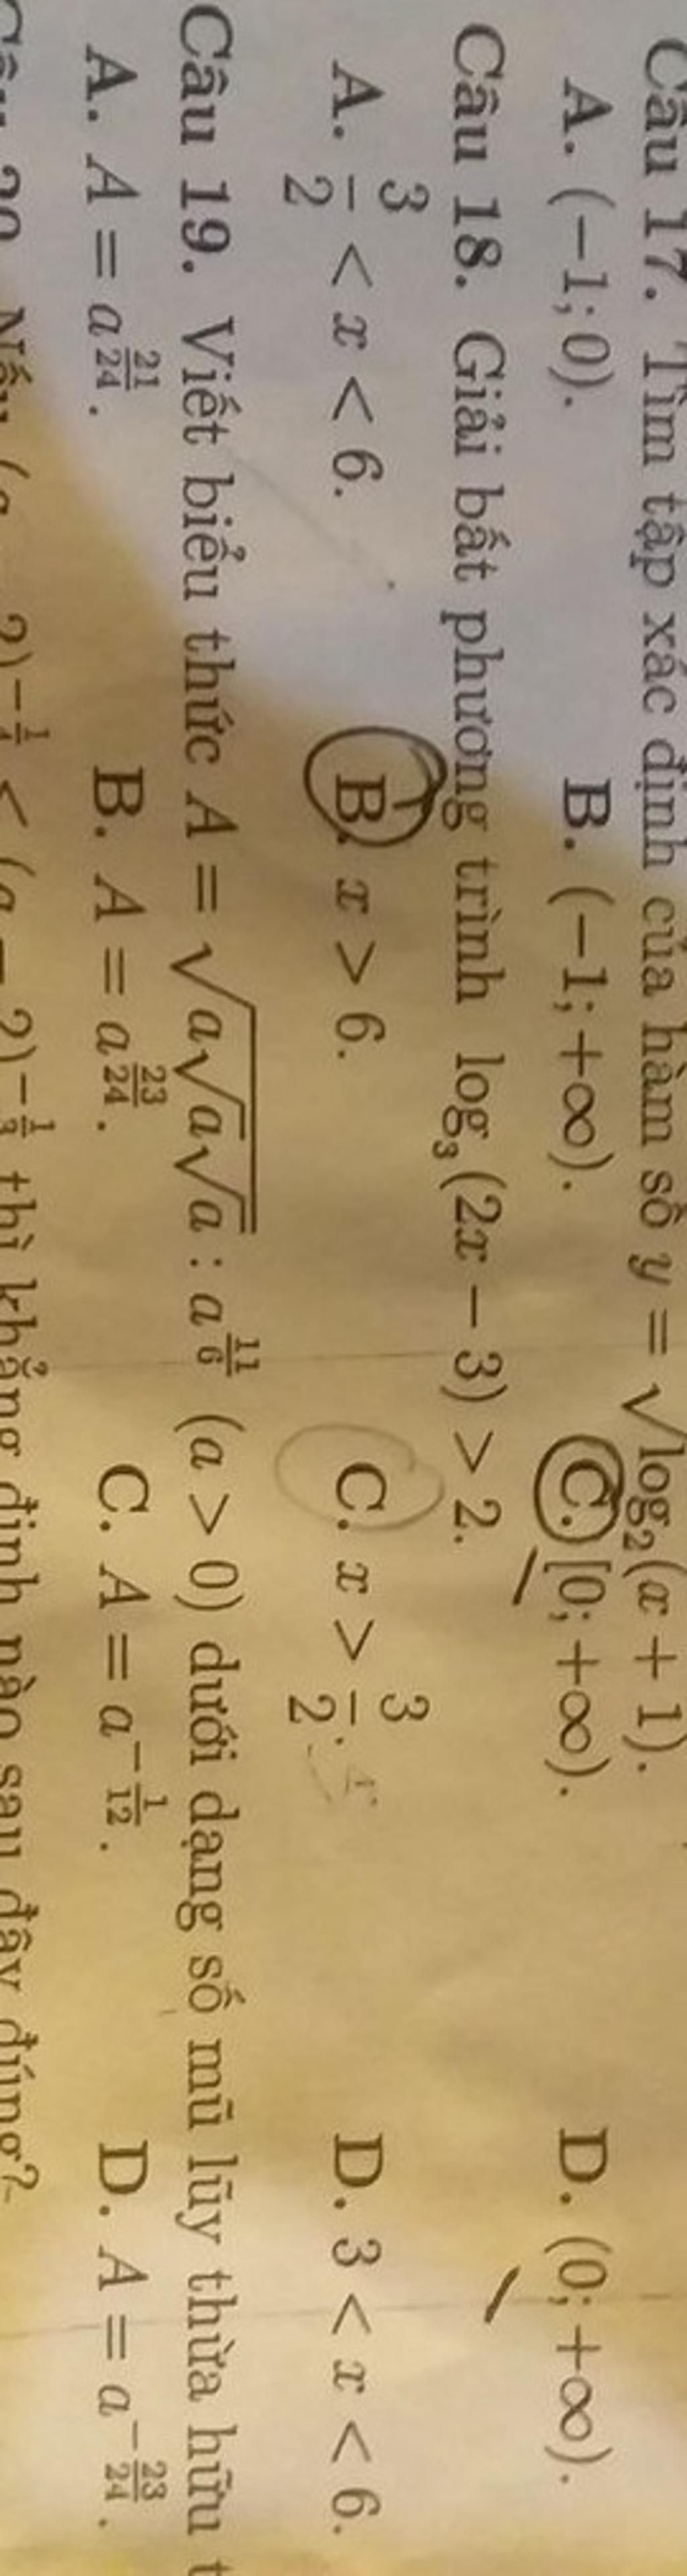 Câu 17. Tìm tập xác định của hàm số y = √log₂(x + 1).
A. (−1; 0). B. (−1; +∞). C. [0; +∞). D. (0; +∞).
Câu 18. Giải bất phương trình log₃(2x − 3) > 2.
A. 3/2 < x < 6. B. x > 6. C. x > 3/2. D. 3 < x < 6.
Câu 19. Viết biểu thức A = √(a√(a√a)) : a^(11/6) (a > 0) dưới dạng số mũ lũy thừa hữu
A. A = a^(21/24). B. A = a^(23/24). C. A = a^(−1/12). D. A = a^(−23/24).
Câu 20. Nếu (a − 2)^(−1/4) < (a − 2)^(−1/3) thì khẳng định nào sau đây đúng?